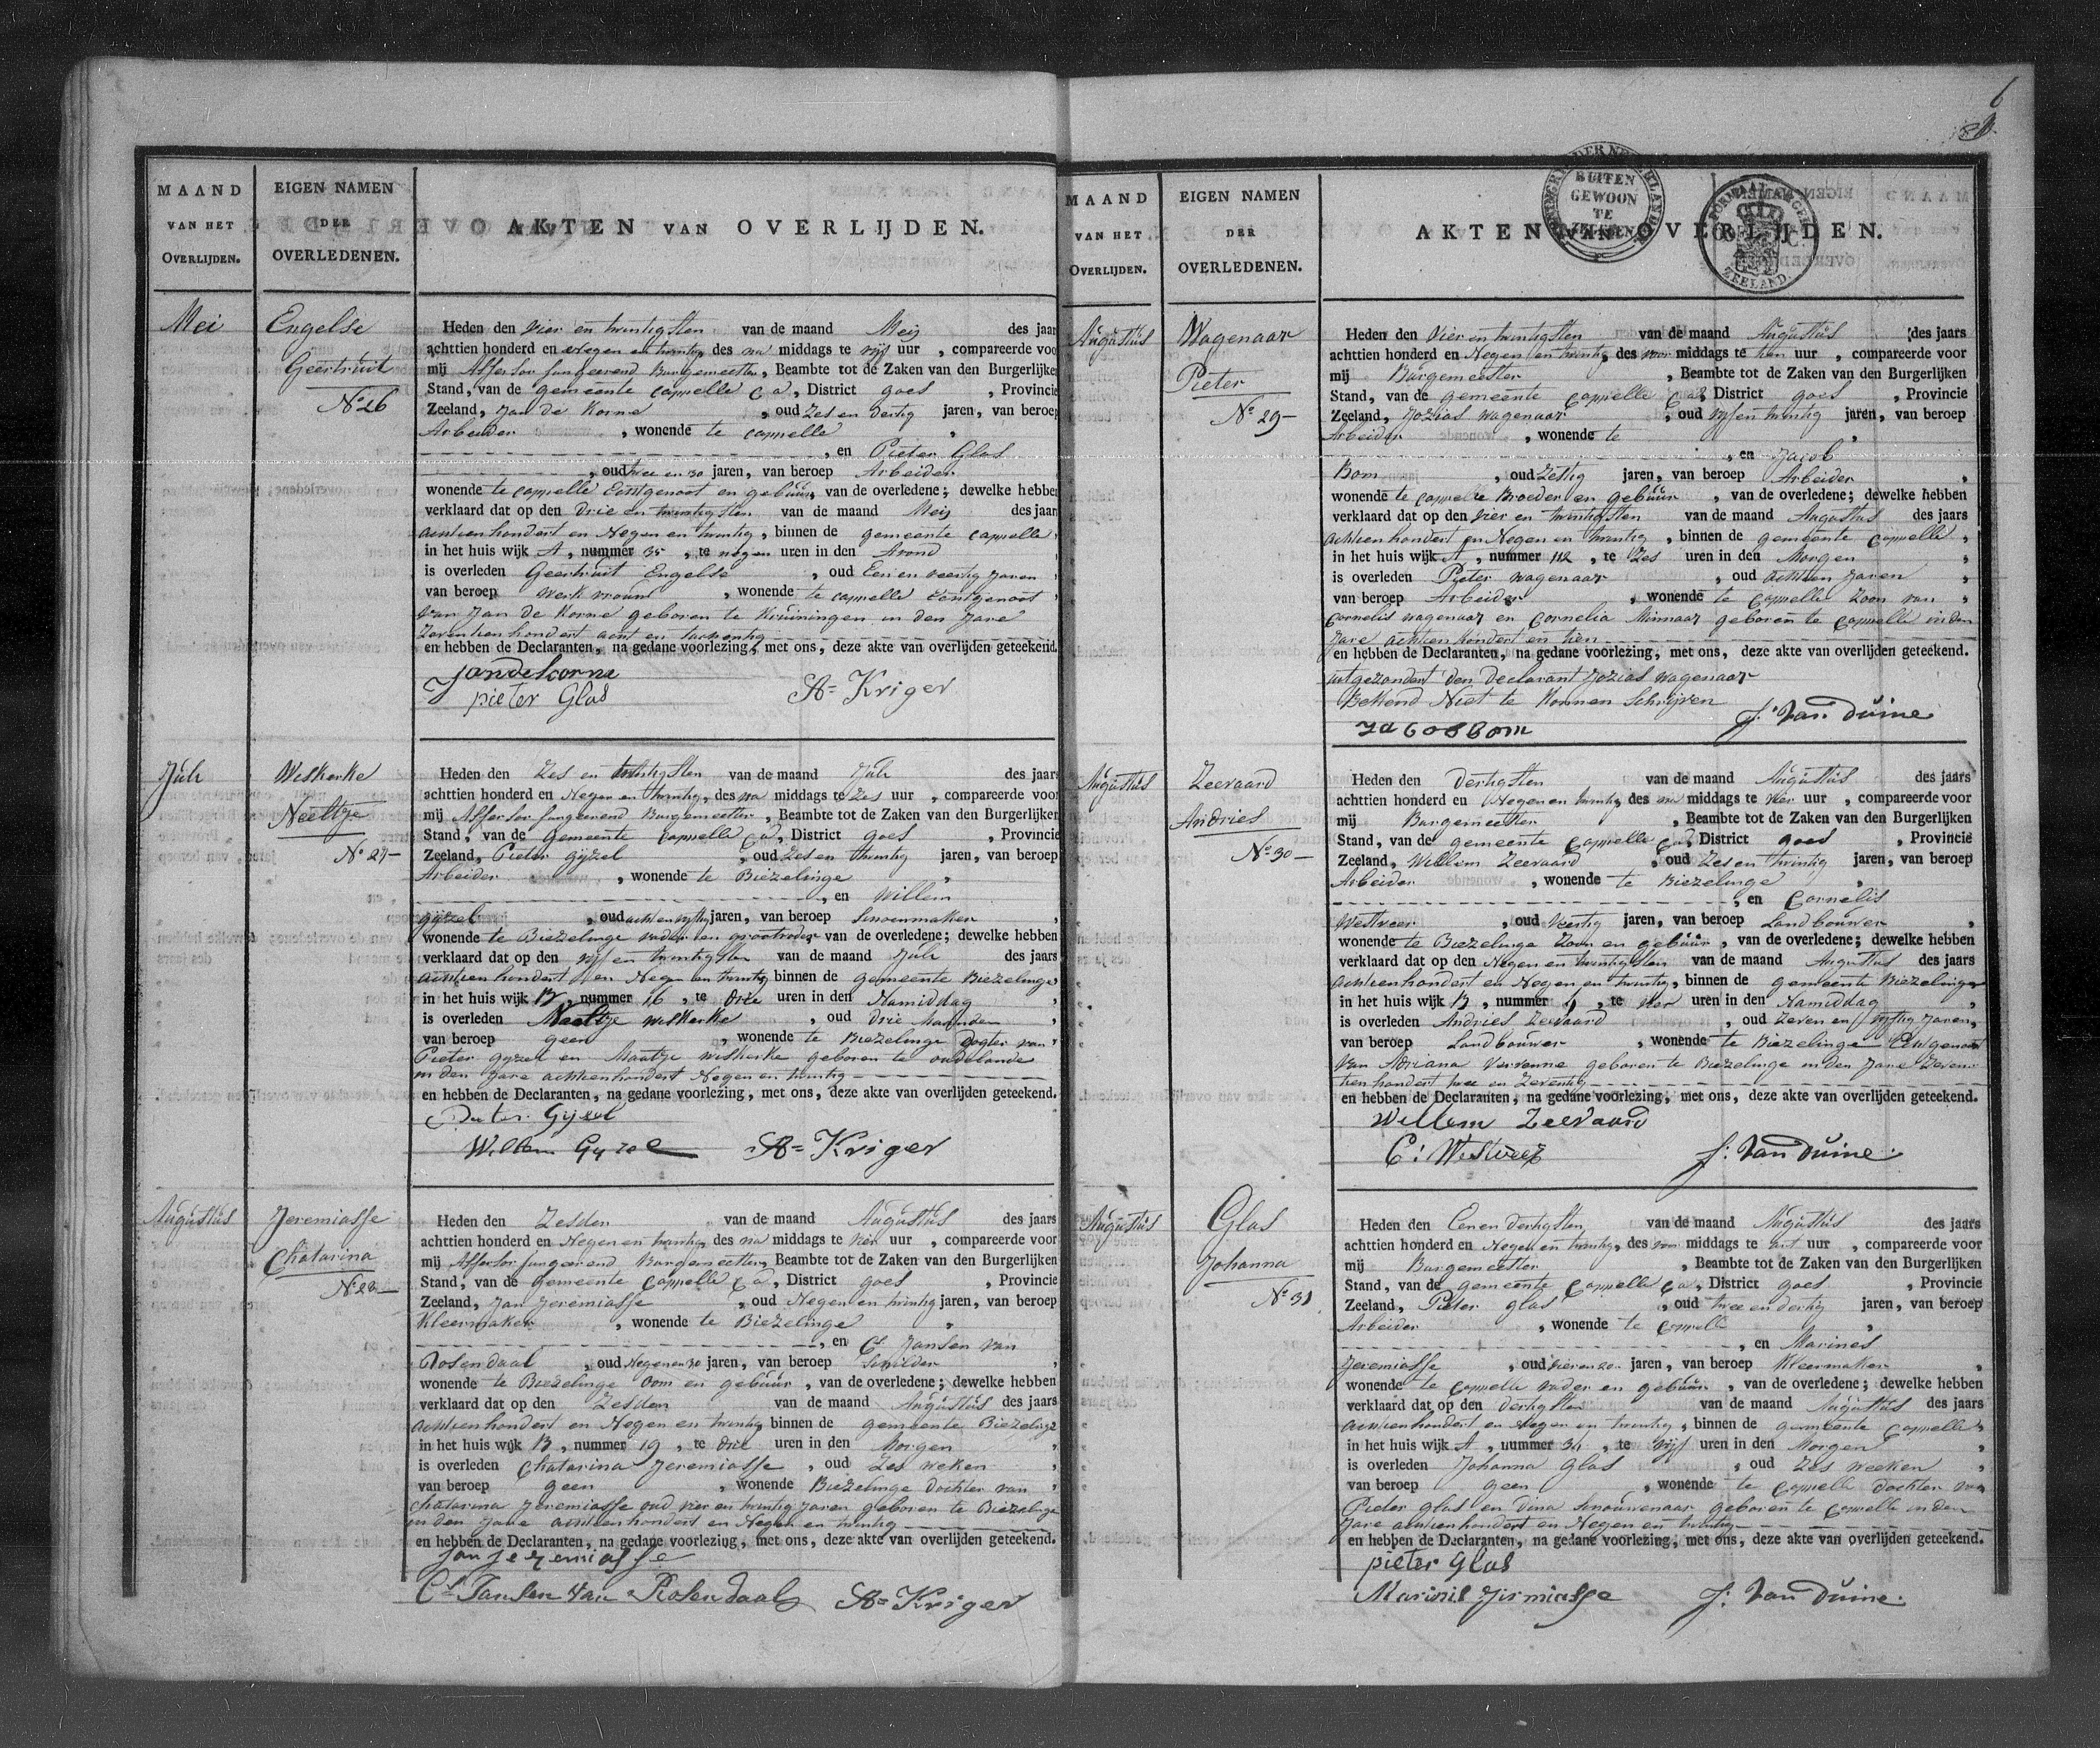 6
MAAND
VAN HET
OVERLIJDEN.
EIGEN NAMEN
DER
OVERLEDENEN.
AKTEN VAN OVERLIJDEN.
Mei
Engelse
Geertruit
No 26
Heden den vier en twintigsten van de maand Meij des jaar
achttien honderd en Negen en twintig des na middags te vijf uur , compareerde voo
mij Assessor fungeerend Burgemeester, Beambte tot de Zaken van den Burgerlijke
Stand, van de gemeente Cappelle c a, District goes , Provincie
Zeeland, Jan de Korne , oud Zes en dertig jaren, van beroep
Arbeider , wonende te Cappelle ,
, en Pieter Glas
, oud twee en 30 jaren, van beroep Arbeider
wonende te Cappelle Echtgenoot en gebuur, van de overledene; dewelke hebben
verklaard dat op den Drie en twintigsten van de maand Meij des jaar
achtienhondert en Negen en twintig, binnen de gemeente Cappelle,
in het huis wijk A, nummer 35, te negen uren in den Avond
is overleden Geertruit Engelse , oud Een en veertig Jaren
van beroep Werkvrouw , wonende te Cappelle Echtgenoot
van Jan de Korne geboren te Kruiningen in den Jare
Zeventienhondert acht en tachentig
en hebben de Declaranten, na gedane voorlezing, met ons, deze akte van overlijden geteekend.
Jandekorne
pieter Glas A= Kriger
Juli
Weskerke
Neeltje
No 27
Heden den Zes en twintigsten van de maand Juli des jaars
achttien honderd en Negen en twintig, des na middags te Zes uur , compareerde voor
mij Assessor fungeerend Burgemeester, Beambte tot de Zaken van den Burgerlijken
Stand, van de gemeente Cappelle c a, District goes , Provincie
Zeeland, Pieter gijzel , oud Zes en twintig jaren, van beroep
Arbeider , wonende te Biezelinge ,
, en Willem
gijzel , oud acht en vijftig jaren, van beroep Schoenmaker ,
wonende te Biezelinge vader en grootvader van de overledene; dewelke hebben
verklaard dat op den vijf en twintigsten van de maand Juli des jaars
achtienhondert en Negen en twintig binnen de gemeente Biezelinge,
in het huis wijk B, nummer 16, te drie uren in den Namiddag ,
is overleden Neeltje Weskerke , oud drie Maanden ,
van beroep geen , wonende te Biezelinge dogter van
Pieter gijzel en Maatje Weskerke geboren te oudelande
in den Jare achtienhondert Negen en twintig
en hebben de Declaranten, na gedane voorlezing, met ons, deze akte van overlijden geteekend.
Pieter Gijzel
Willem Gyzel A= Kriger
Augustus
Jeremiasse
Chatarina
No 28
Heden den Zesden van de maand Augustus des jaars
achttien honderd en Negen en twintig, des na middags te vier uur , compareerde voor
mij Assessor fungeerend Burgemeester, Beambte tot de Zaken van den Burgerlijken
Stand, van de gemeente Cappelle c a, District goes , Provincie
Zeeland, Jan Jeremiasse , oud Negen en twintig jaren, van beroep
Kleermaker , wonende te Biezelinge ,
, en Cs Jansen van
Rosendaal , oud Negen en 30 jaren, van beroep Schilder ,
wonende te Biezelinge oom en gebuur , van de overledene; dewelke hebben
verklaard dat op den Zesden van de maand Augustus des jaars
achtienhondert en Negen en twintig binnen de gemeente Biezelinge
in het huis wijk B, nummer 19, te drie uren in den Morgen ,
is overleden Chatarina Jeremiasse , oud Zes weken ,
van beroep geen , wonende Biezelinge dochter van
Chatarina Jeremiasse oud vier en twintig Jaren geboren te Biezelinge
in den Jare achtienhondert en Negen en twintig
en hebben de Declaranten, na gedane voorlezing, met ons, deze akte van overlijden geteekend.
Jan jeremiasse
Cs Jansen van Rosendaal A= Kriger
MAAND
VAN HET
OVERLIJDEN.
EIGEN NAMEN
DER
OVERLEDENEN.
AKTEN VAN OVERLIJDEN.
BUITEN
GEWOON
TE
ZEELAND.
Augustus
Wagenaar
Pieter
No 29
Heden den Vier en twintigsten van de maand Augustus des jaars
achttien honderd en Negen en twintig des voor middags te tien uur , compareerde voor
mij Burgemeester , Beambte tot de Zaken van den Burgerlijken
Stand, van de gemeente Cappelle c a, District goes , Provincie
Zeeland, Jozias Wagenaar , oud vijf en twintig jaren, van beroep
Arbeider , wonende te ,
, en Jacob
Bom , oud Zestig jaren, van beroep Arbeider ,
wonende te Cappelle Broeder en gebuur , van de overledene; dewelke hebben
verklaard dat op den vier en twintigsten van de maand Augustus des jaars
achtienhondert en Negen en twintig , binnen de gemeente Cappelle ,
in het huis wijk A, nummer 112 , te Zes uren in den Morgen ,
is overleden Pieter Wagenaar , oud achtien Jaren ,
van beroep Arbeider , wonende te Cappelle Zoon van ,
Cornelis Wagenaar en Cornelia Minnaar geboren te Cappelle in den
Jare achtienhondert en tien
en hebben de Declaranten, na gedane voorlezing, met ons, deze akte van overlijden geteekend.
uitgezondert den Declarant Jozias Wagenaar
Bekend Niet te Konnen Schrijven
Jacob Bom J: Van Duine
Augustus
Zeevaard
Andries
No 30
Heden den dertigsten van de maand Augustus des jaars
achttien honderd en Negen en twintig des na middags te vier uur , compareerde voor
mij Burgemeester , Beambte tot de Zaken van den Burgerlijken
Stand, van de gemeente Cappelle c a, District goes , Provincie
Zeeland, Willem Zeevaard , oud Zes en twintig jaren, van beroep
Arbeider , wonende te Biezelinge ,
, en Cornelis
Westveer , oud Veertig jaren, van beroep Landbouwer ,
wonende te Biezelinge Zoon en gebuur , van de overledene; dewelke hebben
verklaard dat op den Negen en twintigsten van de maand Augustus des jaars
achtienhondert en Negen en twintig, binnen de gemeente Biezelinge
in het huis wijk B , nummer , te vier uren in den Namiddag ,
is overleden Andries Zeevaard , oud Zeven en vijftig Jaren,
van beroep Landbouwer , wonende te Biezelinge Echtgenoot
van Adriana geboren te Biezelinge in den Jare Zeven
tienhondert twee en Zeventig
en hebben de Declaranten, na gedane voorlezing, met ons, deze akte van overlijden geteekend.
Willem Zeevaard
C: Westveer J: Van Duine
Augustus
Glas
Johanna
No 31
Heden den Een en dertigsten van de maand Augustus des jaars
achttien honderd en Negen en twintig, des voor middags te acht uur , compareerde voor
mij Burgemeester , Beambte tot de Zaken van den Burgerlijken
Stand, van de gemeente Cappelle c a, District goes , Provincie
Zeeland, Pieter Glas , oud twee en dertig jaren, van beroep
Arbeider , wonende te Cappelle ,
, en Marines
Jeremiasse , oud jaren, van beroep Kleermaker ,
wonende te Cappelle vader en gebuur , van de overledene; dewelke hebben
verklaard dat op den dertigsten van de maand Augustus des jaars
achtienhondert en Negen en twintig , binnen de gemeente Cappelle ,
in het huis wijk A , nummer , te vijf uren in den Morgen ,
is overleden Johanna Glas , oud Zes weeken ,
van beroep geen , wonende te Cappelle dochter van
Pieter Glas en Dina geboren te Cappelle in den
Jare achtienhondert en Negen en twintig
en hebben de Declaranten, na gedane voorlezing, met ons, deze akte van overlijden geteekend.
pieter Glas
Marinis Jirmiasse J: Van Duine